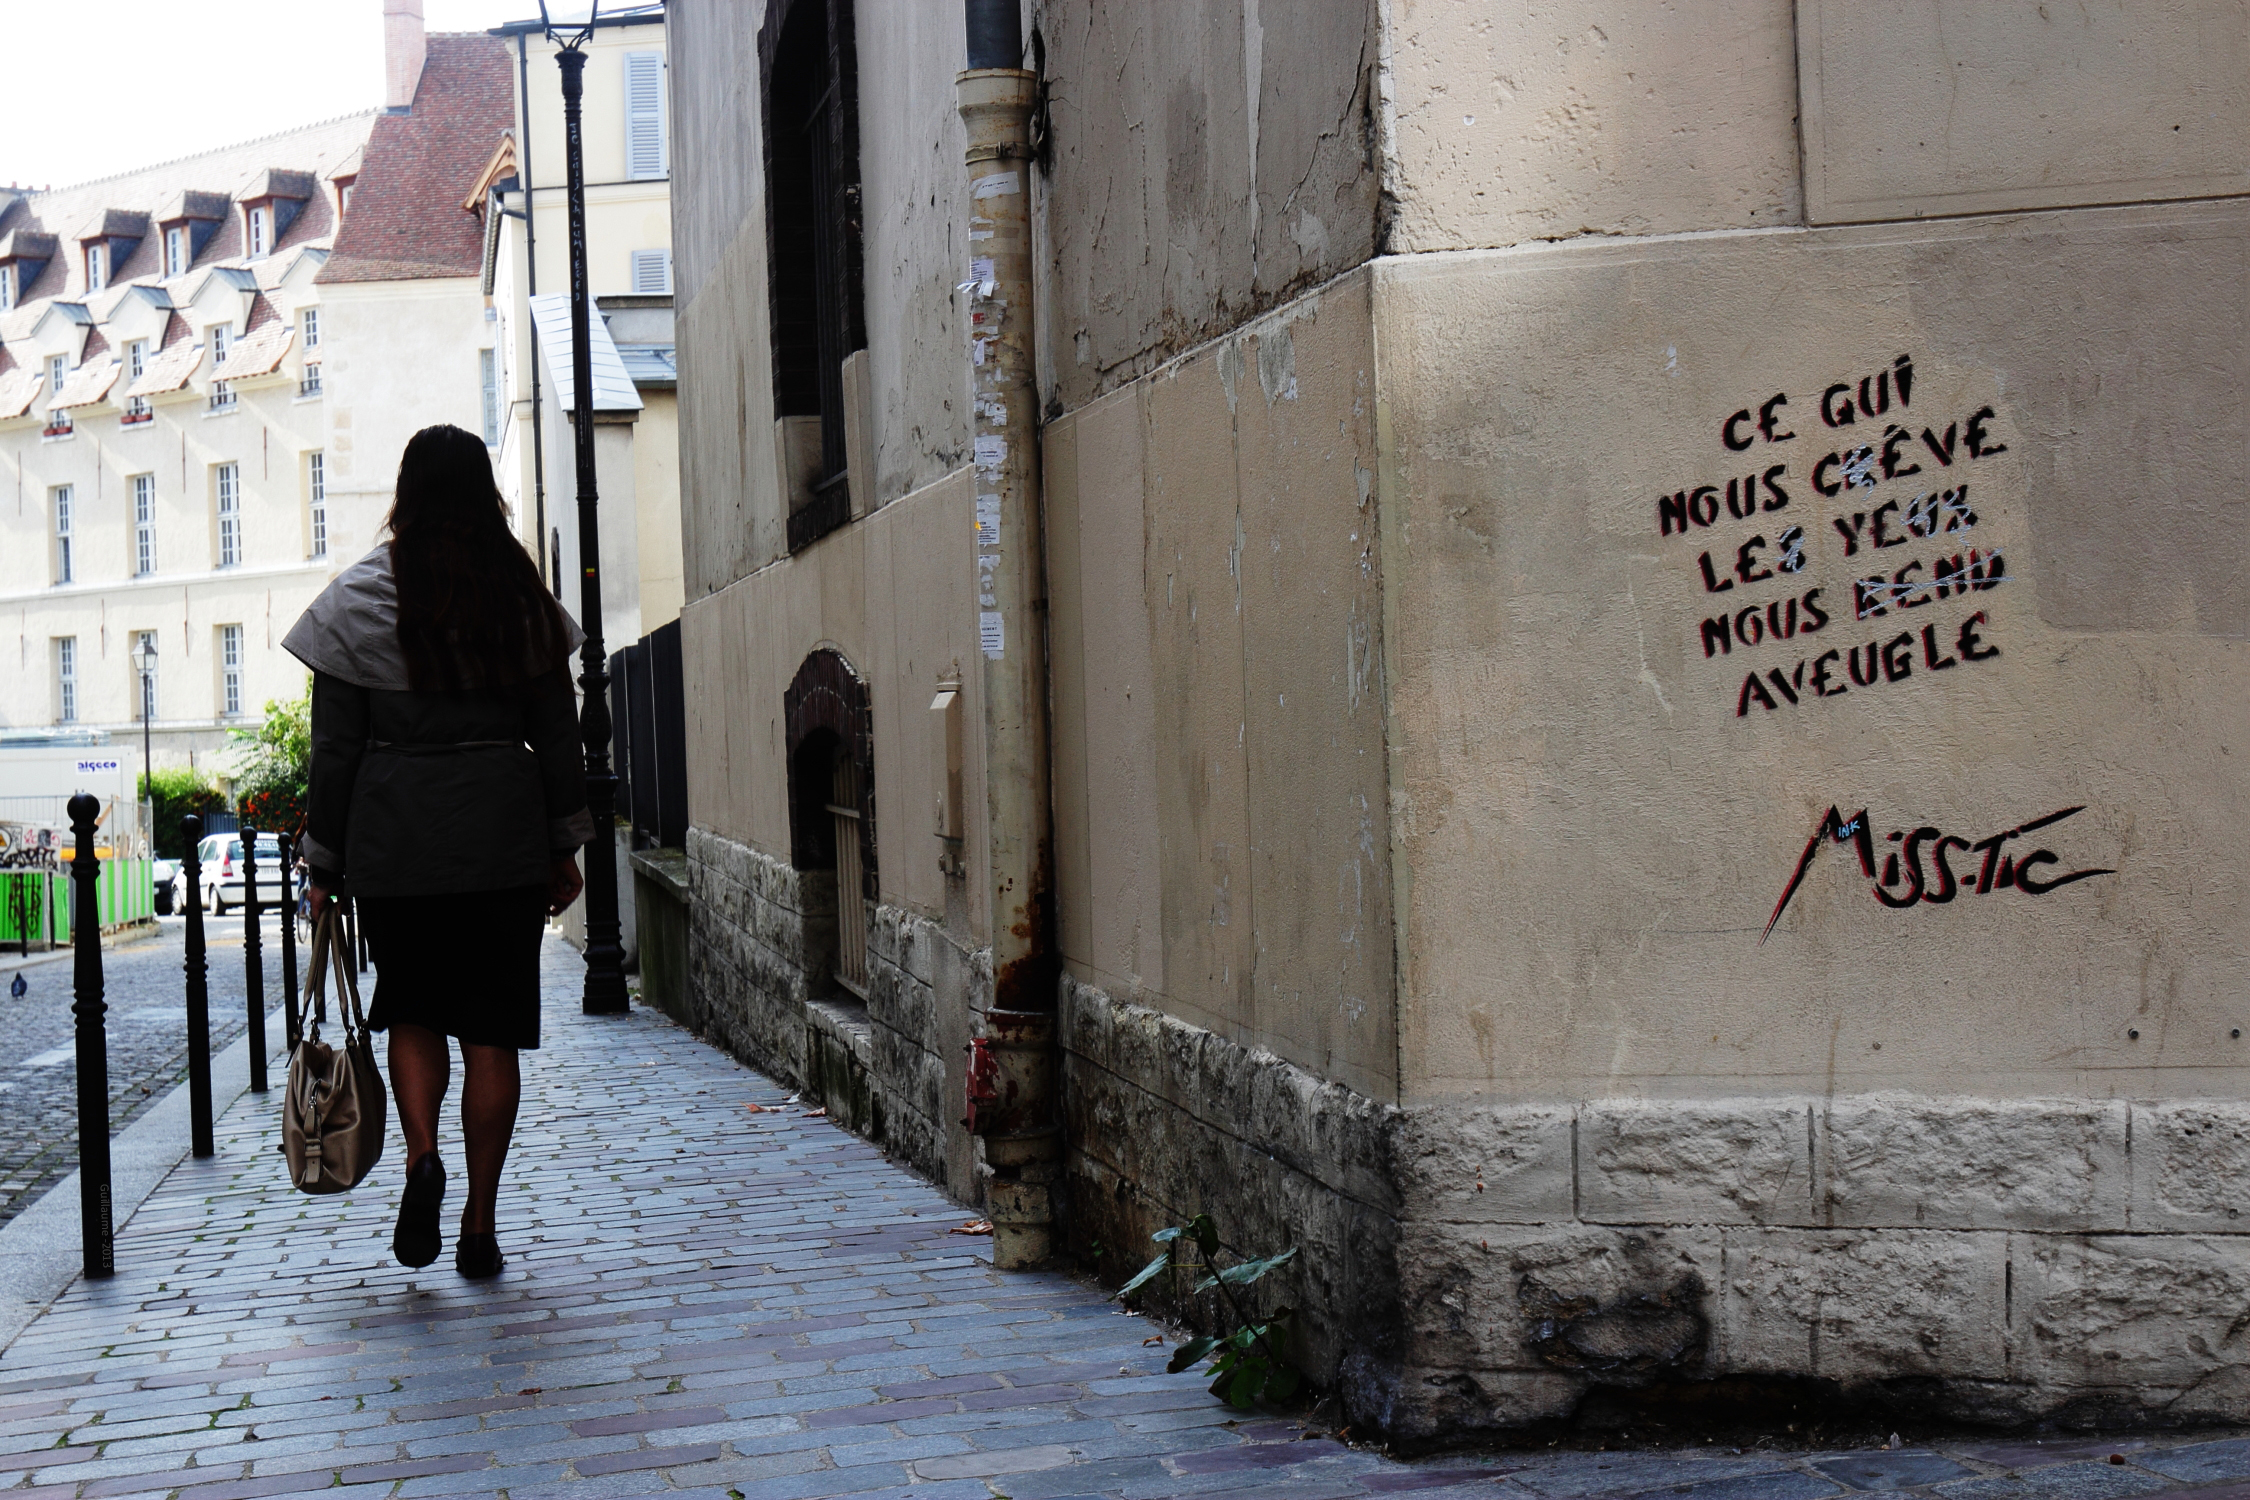 CE QUI
NOUS CRÈVE
LES YEUX
NOUS REND
AVEUGLE
MISS.TIC
INK
algeco
Guillaume - 2013